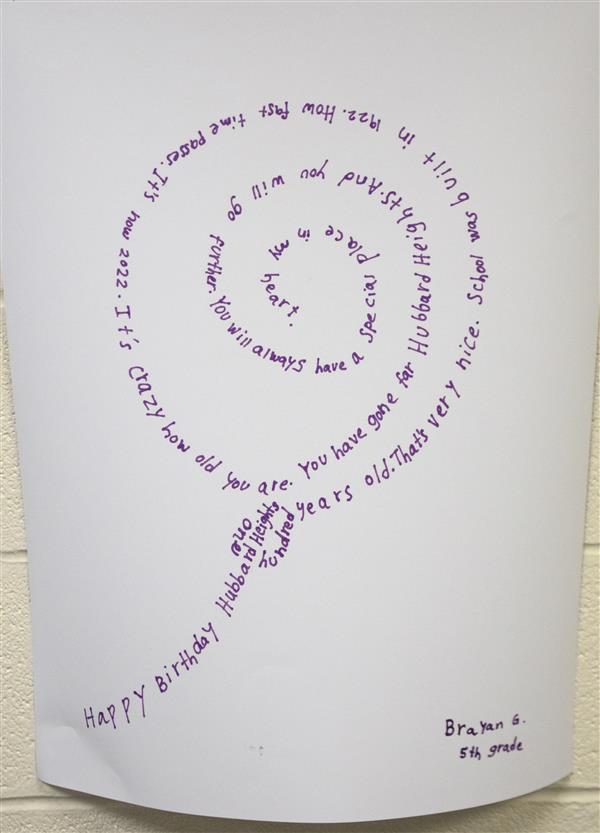 Happy Birthday Hubbard Heights one hundred years old. That's very nice. School was built in 1922. How fast time passes. It's now 2022. It's crazy how old you are. You have gone far Hubbard Heights. And you will go further. You will always have a special place in my heart.
Brayan G.
5th grade